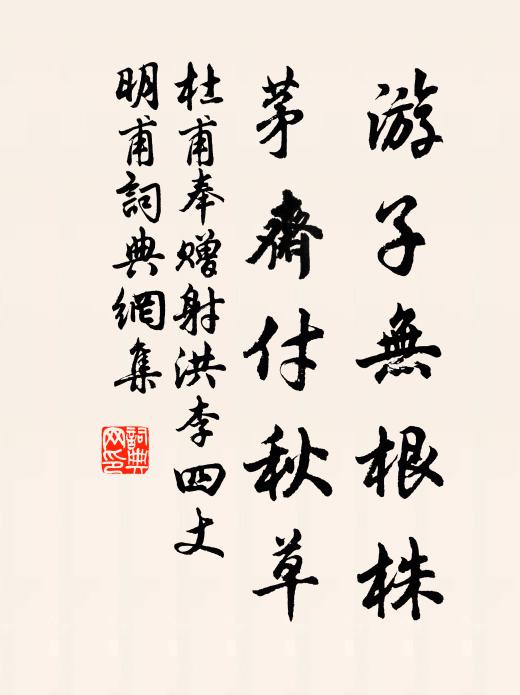 游子無根株
茅齋付秋草
杜甫奉贈射洪李四丈
明甫詞典網集
詞典
网印